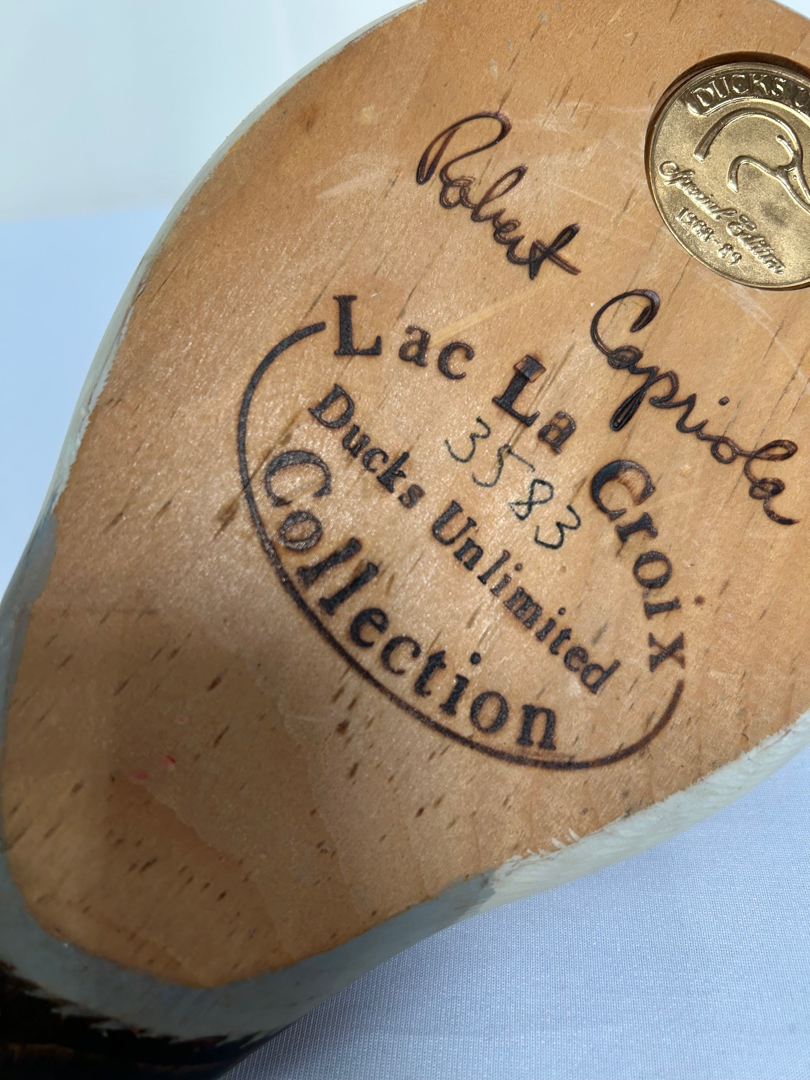 DUCKS U
Special Edition
1988-89
Robert Capriola
Lac La Croix
3583
Ducks Unlimited
Collection